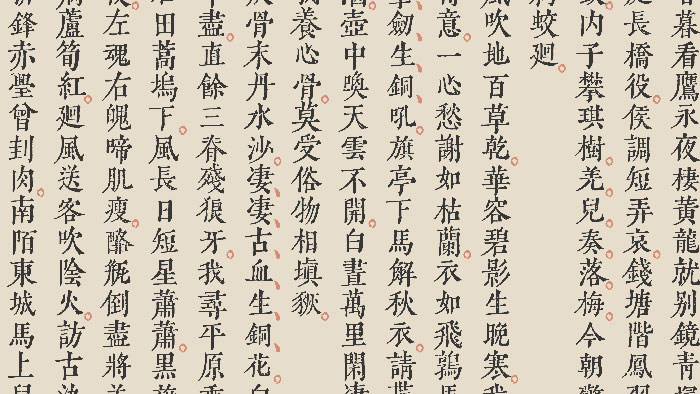 暮看鷹永夜棲黃龍就别鏡青
長橋役侯調短弄哀錢塘階鳳羽
内子攀琪樹羌兒奏落梅今朝
蛟廻
風吹地百草乾華容碧影生晚寒我
意一心愁謝如枯蘭衣如飛鶉馬
劒生銅吼旗亭下馬解秋衣請
壺中喚天雲不開白晝萬里閑凄
養心骨莫受俗物相塡豗
骨末丹水沙凄凄古血生銅花白
盡直餘三脊殘狼牙我尋平原乘
田蒿塢下風長日短星蕭蕭黑旗
左魂右魄啼肌瘦酪瓶倒盡將羊
蘆筍紅廻風送客吹陰火訪古
鋒赤璺曾刲肉南陌東城馬上兒